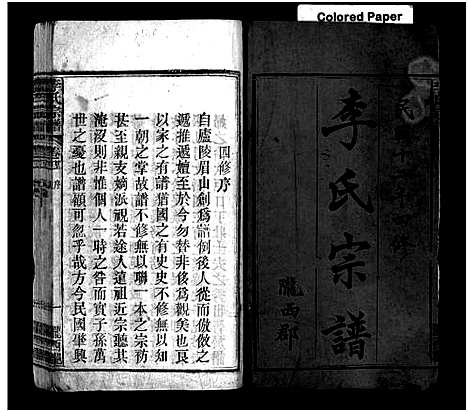 Colored Paper
李氏宗譜
隴西郡
四修序
自廬陵眉山創為譜例後人從而倣傚之
遞推遞嬗至於今勿替非後為觀美也良
以家之有譜猶國之有史史不修無以知
一朝之掌故譜不修無以聯一本之宗祊
甚至親支嫡派視若途人遠祖近宗聽其
淹沒則非惟個人一時之咎實子孫萬
世之憂也譜顧可忽乎哉方今民國肇興